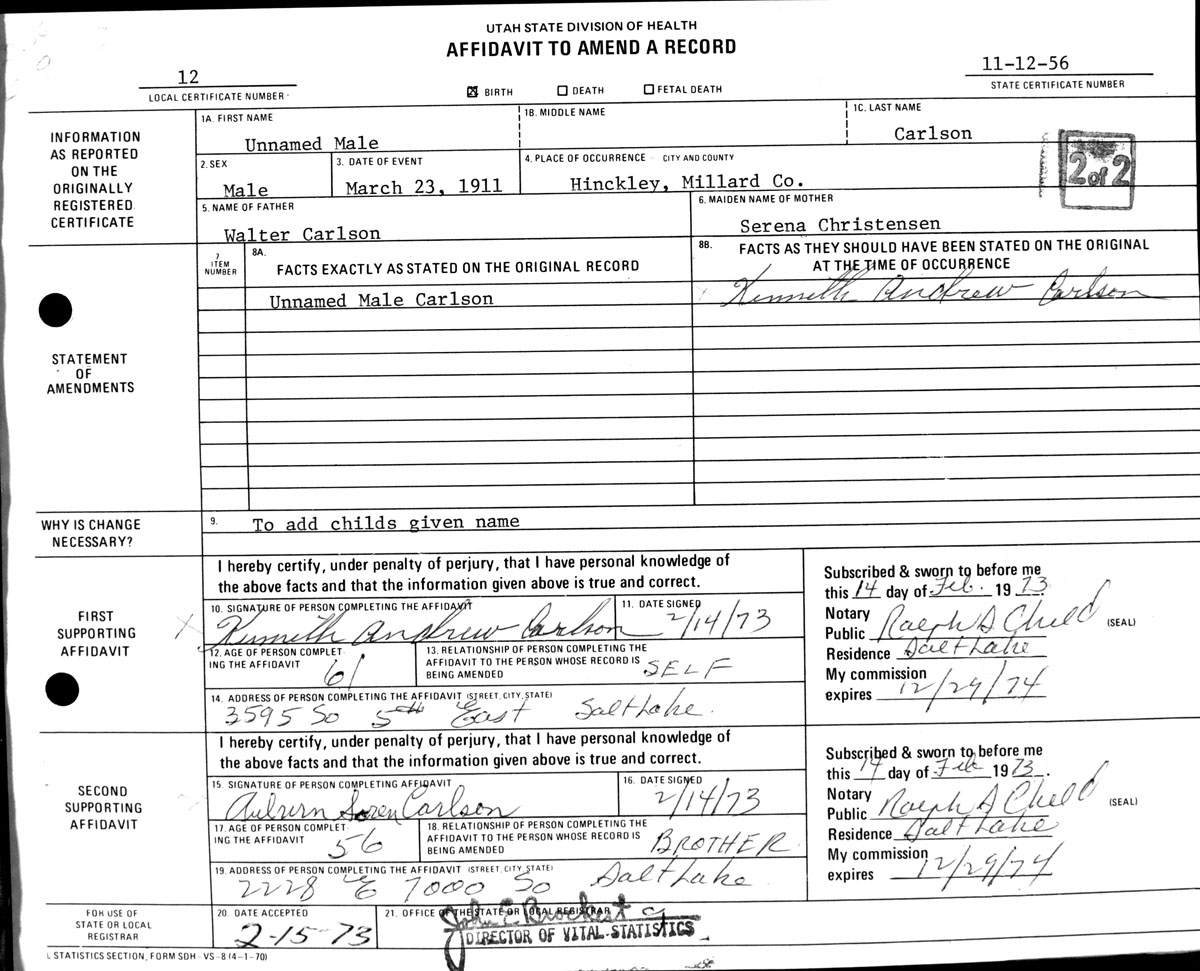 UTAH STATE DIVISION OF HEALTH
AFFIDAVIT TO AMEND A RECORD
12
LOCAL CERTIFICATE NUMBER
BIRTH DEATH FETAL DEATH
11-12-56
STATE CERTIFICATE NUMBER
INFORMATION
AS REPORTED
ON THE
ORIGINALLY
REGISTERED
CERTIFICATE
1A. FIRST NAME
Unnamed Male
1B. MIDDLE NAME
1C. LAST NAME
Carlson
2. SEX
Male
3. DATE OF EVENT
March 23, 1911
4. PLACE OF OCCURRENCE - CITY AND COUNTY
Hinckley, Millard Co.
2 of 2
5. NAME OF FATHER
Walter Carlson
6. MAIDEN NAME OF MOTHER
Serena Christensen
STATEMENT
OF
AMENDMENTS
7
ITEM
NUMBER
8A.
FACTS EXACTLY AS STATED ON THE ORIGINAL RECORD
8B. FACTS AS THEY SHOULD HAVE BEEN STATED ON THE ORIGINAL
AT THE TIME OF OCCURRENCE
Unnamed Male Carlson
Kenneth Andrew Carlson
WHY IS CHANGE
NECESSARY?
9. To add childs given name
FIRST
SUPPORTING
AFFIDAVIT
I hereby certify, under penalty of perjury, that I have personal knowledge of
the above facts and that the information given above is true and correct.
10. SIGNATURE OF PERSON COMPLETING THE AFFIDAVIT
X Kenneth Andrew Carlson
11. DATE SIGNED
2/14/73
12. AGE OF PERSON COMPLET-
ING THE AFFIDAVIT 61
13. RELATIONSHIP OF PERSON COMPLETING THE
AFFIDAVIT TO THE PERSON WHOSE RECORD IS
BEING AMENDED SELF
14. ADDRESS OF PERSON COMPLETING THE AFFIDAVIT (STREET, CITY, STATE)
3595 So 5th East Salt Lake.
Subscribed & sworn to before me
this 14 day of Feb. 1973.
Notary
Public Ralph S Child (SEAL)
Residence Salt Lake
My commission
expires 12/29/74
SECOND
SUPPORTING
AFFIDAVIT
I hereby certify, under penalty of perjury, that I have personal knowledge of
the above facts and that the information given above is true and correct.
15. SIGNATURE OF PERSON COMPLETING AFFIDAVIT
Auburn Soren Carlson
16. DATE SIGNED
2/14/73
17. AGE OF PERSON COMPLET-
ING THE AFFIDAVIT 56
18. RELATIONSHIP OF PERSON COMPLETING THE
AFFIDAVIT TO THE PERSON WHOSE RECORD IS
BEING AMENDED BROTHER
19. ADDRESS OF PERSON COMPLETING THE AFFIDAVIT (STREET, CITY, STATE)
2228 E 7000 So Salt Lake
Subscribed & sworn to before me
this 14 day of Feb 1973.
Notary
Public Ralph S Child (SEAL)
Residence Salt Lake
My commission
expires 12/29/74
FOR USE OF
STATE OR LOCAL
REGISTRAR
20. DATE ACCEPTED
2-15-73
21. OFFICE OF THE STATE OR LOCAL REGISTRAR
John E.
DIRECTOR OF VITAL STATISTICS
STATISTICS SECTION, FORM SDH - VS - 8 (4-1-70)